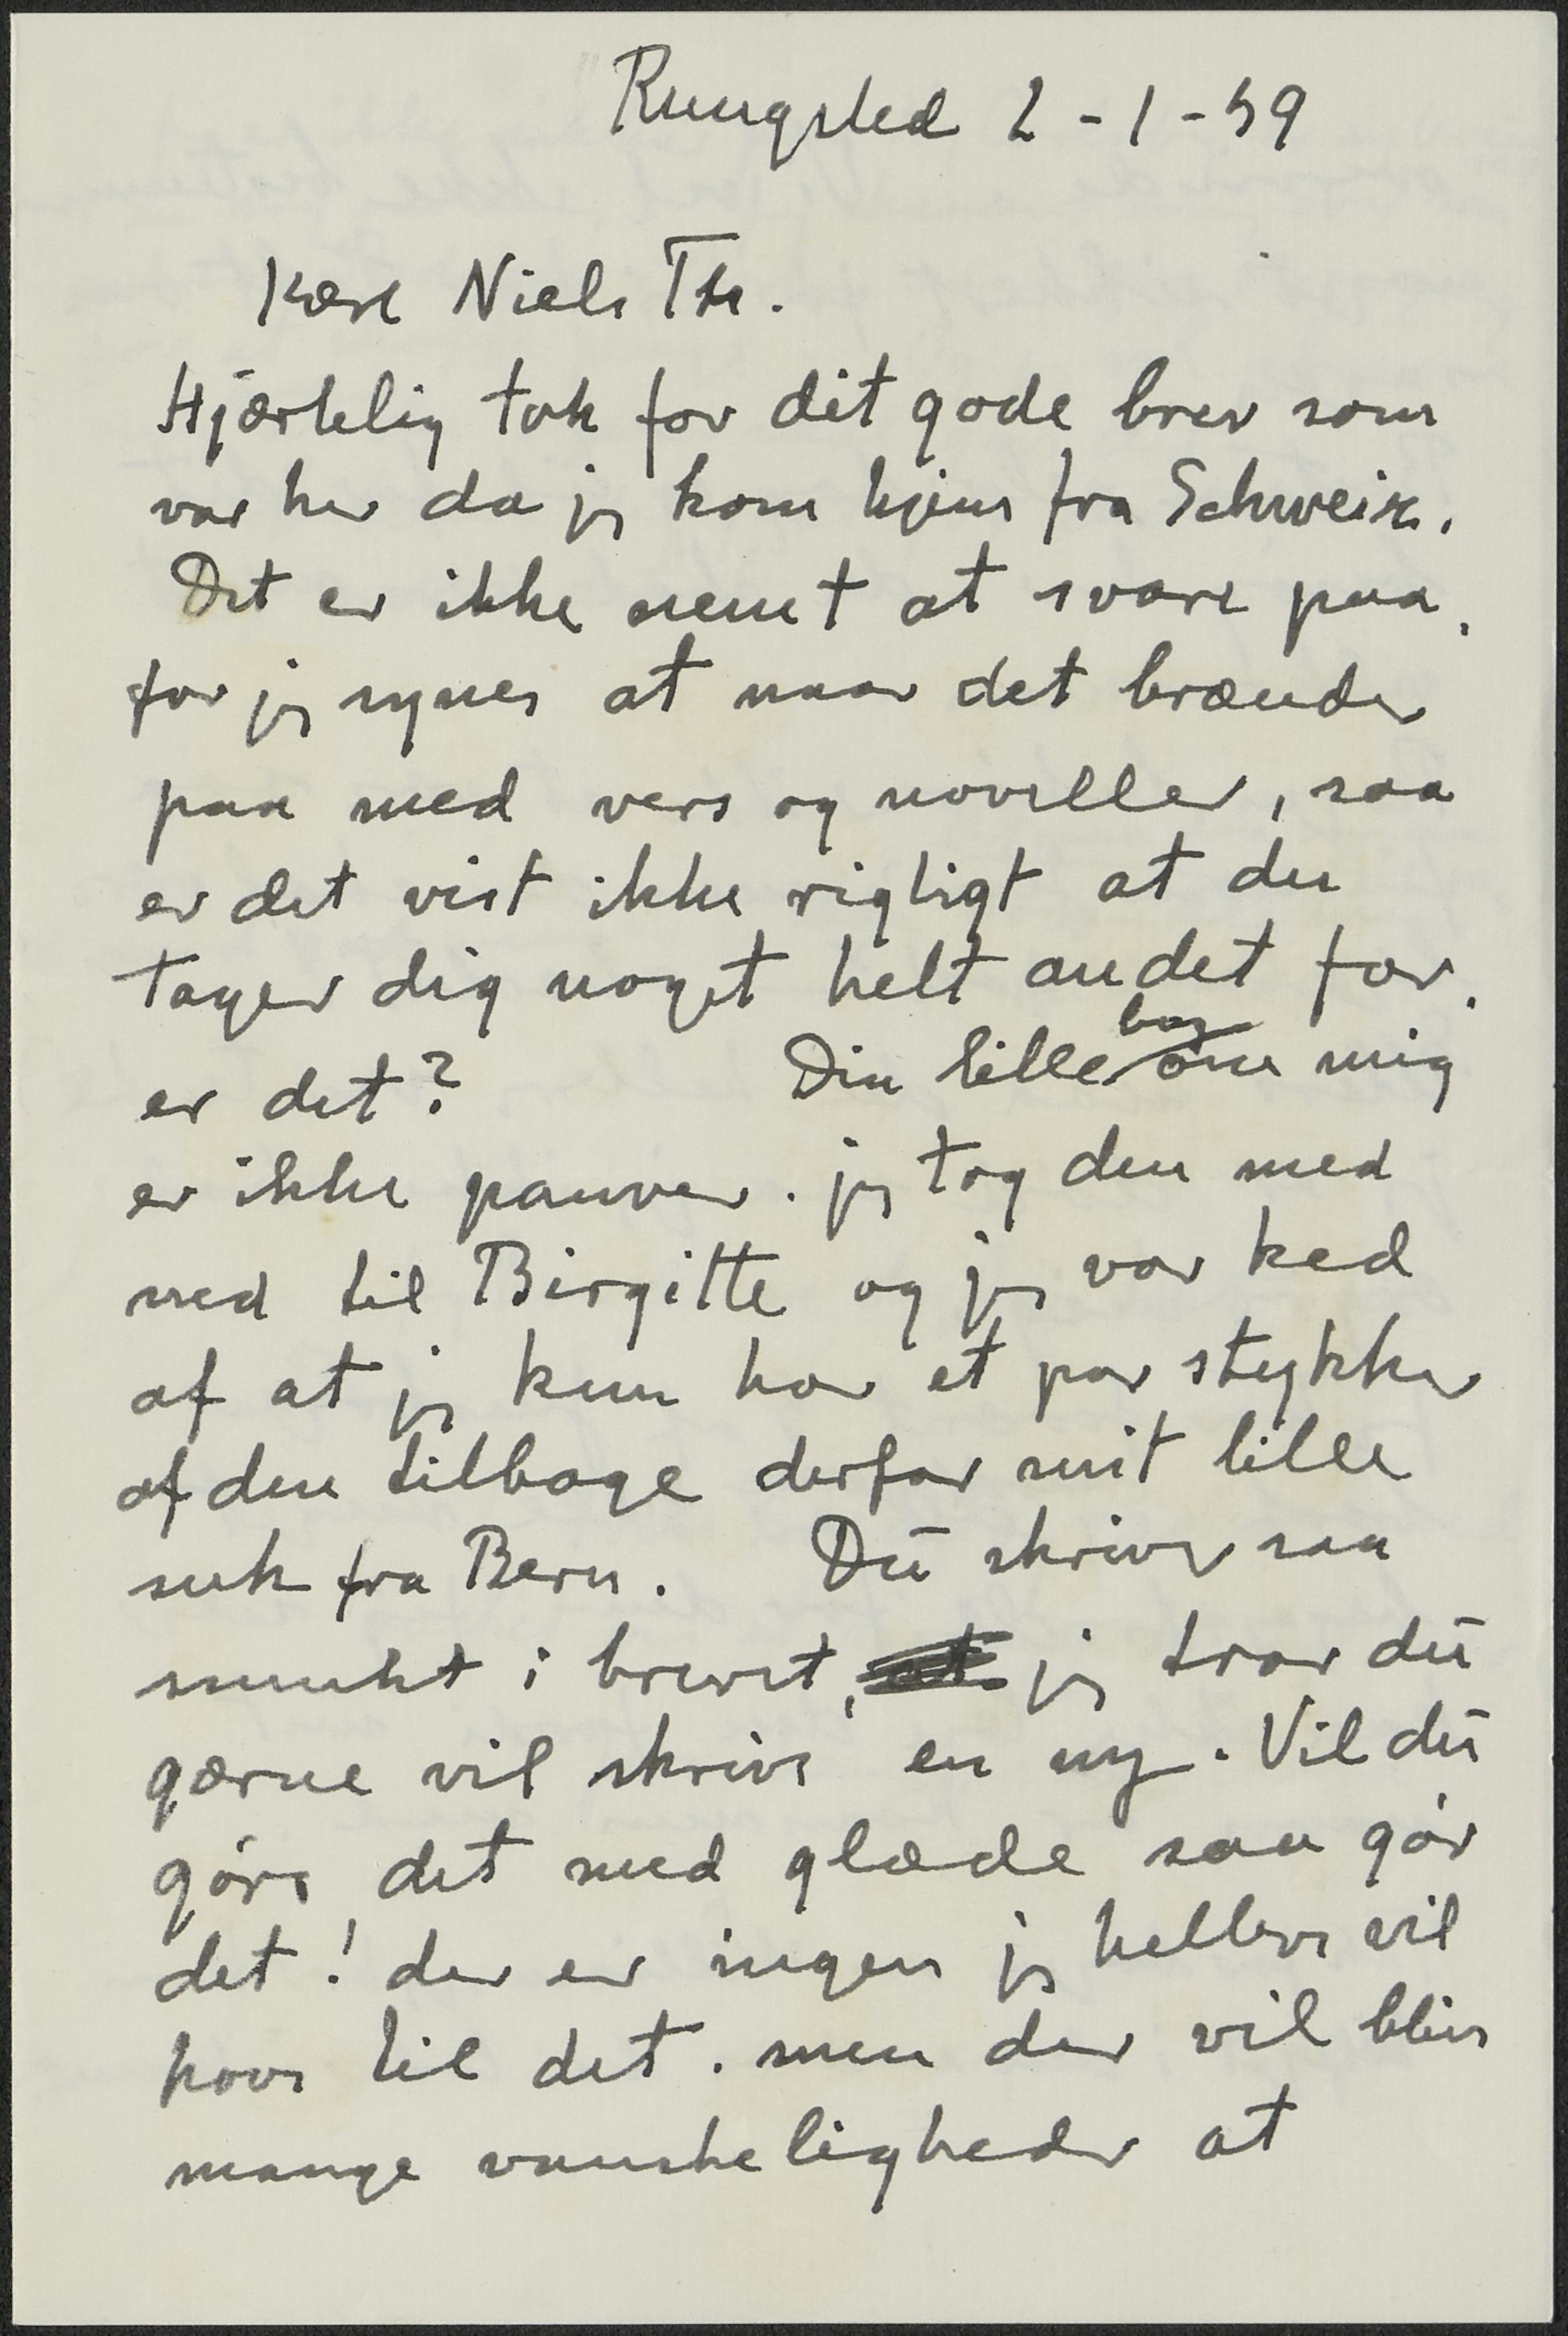 Rungsted 2-1-59
Kære Niels Th.
Hjærtelig tak for dit gode brev som
var her da jeg kom hjem fra Schweiz.
Det er ikke nemt at svare paa,
for jeg synes at naar det brænder
paa med vers og noveller, saa
er det vist ikke rigtigt at du
tager dig noget helt andet for,
er det? Din lille bog om mig
er ikke pauver. jeg tog den med
ned til Birgitte og jeg var ked
af at jeg kun har et par stykker
af den tilbage derfor mit lille
suk fra Bern. Du skriver saa
smukt i brevet, at jeg tror du
gærne vil skrive en ny. Vil du
gøre det med glæde saa gør
det! der er ingen jeg hellere vil
have til det. men der vil blive
mange vanskeligheder at